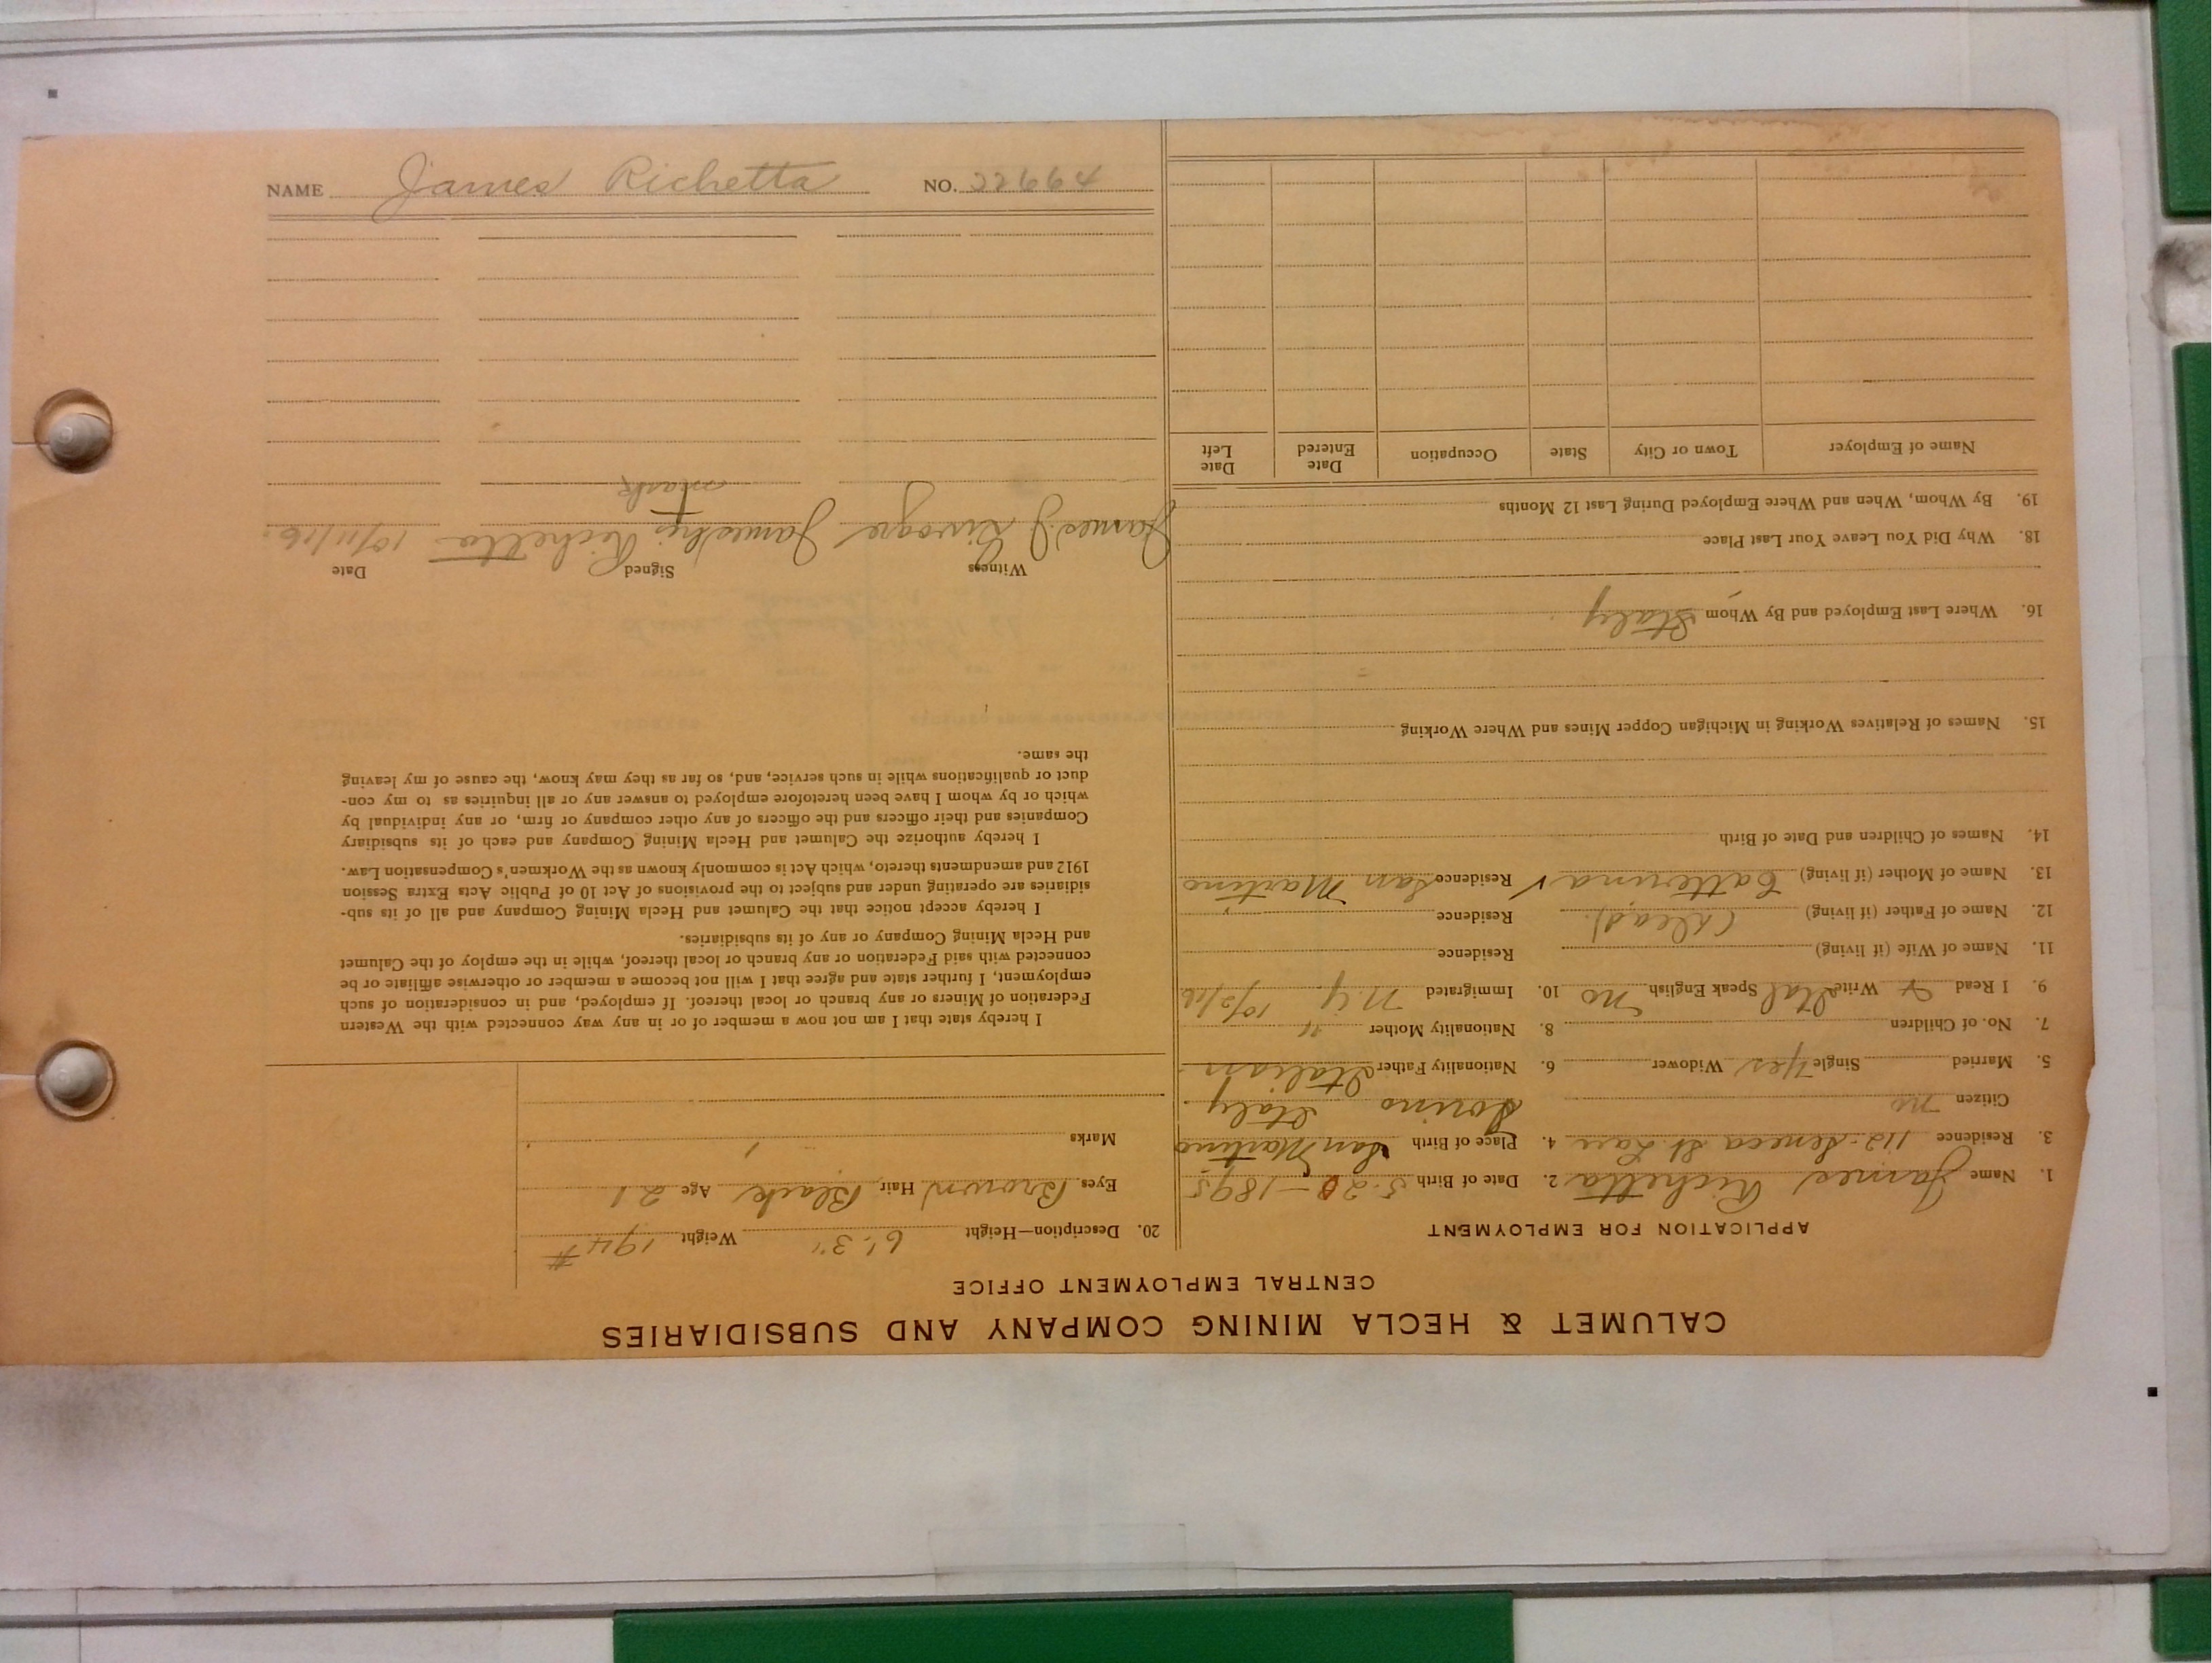 CALUMET & HECLA MINING COMPANY AND SUBSIDIARIES
CENTRAL EMPLOYMENT OFFICE
APPLICATION FOR EMPLOYMENT
1. Name James Richetta 2. Date of Birth 5-20-1895
3. Residence 112-Seneca St. 4. Place of Birth San Martino
Citizen no Italy
5. Married Single Yes Widower 6. Nationality Father Italian
7. No. of Children 8. Nationality Mother "
9. I Read & Write Ital Speak English no 10. Immigrated N.Y. 10/2/16
11. Name of Wife (if living) Residence
12. Name of Father (if living) (Dead). Residence
13. Name of Mother (if living) Catterina ✓ Residence San Martino
14. Names of Children and Date of Birth
15. Names of Relatives Working in Michigan Copper Mines and Where Working
16. Where Last Employed and By Whom Italy
18. Why Did You Leave Your Last Place
19. By Whom, When and Where Employed During Last 12 Months
Name of Employer Town or City State Occupation Date Entered Date Left
20. Description—Height 6'. 3" Weight 194 #
Eyes Brown Hair, Black Age 21
Marks
I hereby state that I am not now a member of or in any way connected with the Western
Federation of Miners or any branch or local thereof. If employed, and in consideration of such
employment, I further state and agree that I will not become a member or otherwise affiliate or be
connected with said Federation or any branch or local thereof, while in the employ of the Calumet
and Hecla Mining Company or any of its subsidiaries.
I hereby accept notice that the Calumet and Hecla Mining Company and all of its sub-
sidiaries are operating under and subject to the provisions of Act 10 of Public Acts Extra Session
1912 and amendments thereto, which Act is commonly known as the Workmen's Compensation Law.
I hereby authorize the Calumet and Hecla Mining Company and each of its subsidiary
Companies and their officers and the officers of any other company or firm, or any individual by
which or by whom I have been heretofore employed to answer any or all inquiries as to my con-
duct or qualifications while in such service, and, so far as they may know, the cause of my leaving
the same.
Witness Signed Date
James J. James his Richetta 10/11/16.
mark
NAME James Richetta NO. 22664